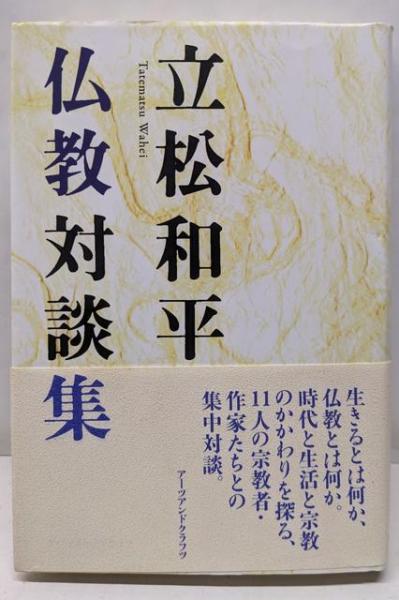 立松和平
Tatematsu Wahei
仏教対談集
生きるとは何か、
仏教とは何か。
時代と生活と宗教
のかかわりを探る、
11人の宗教者・
作家たちとの
集中対談。
アーツアンドクラフツ